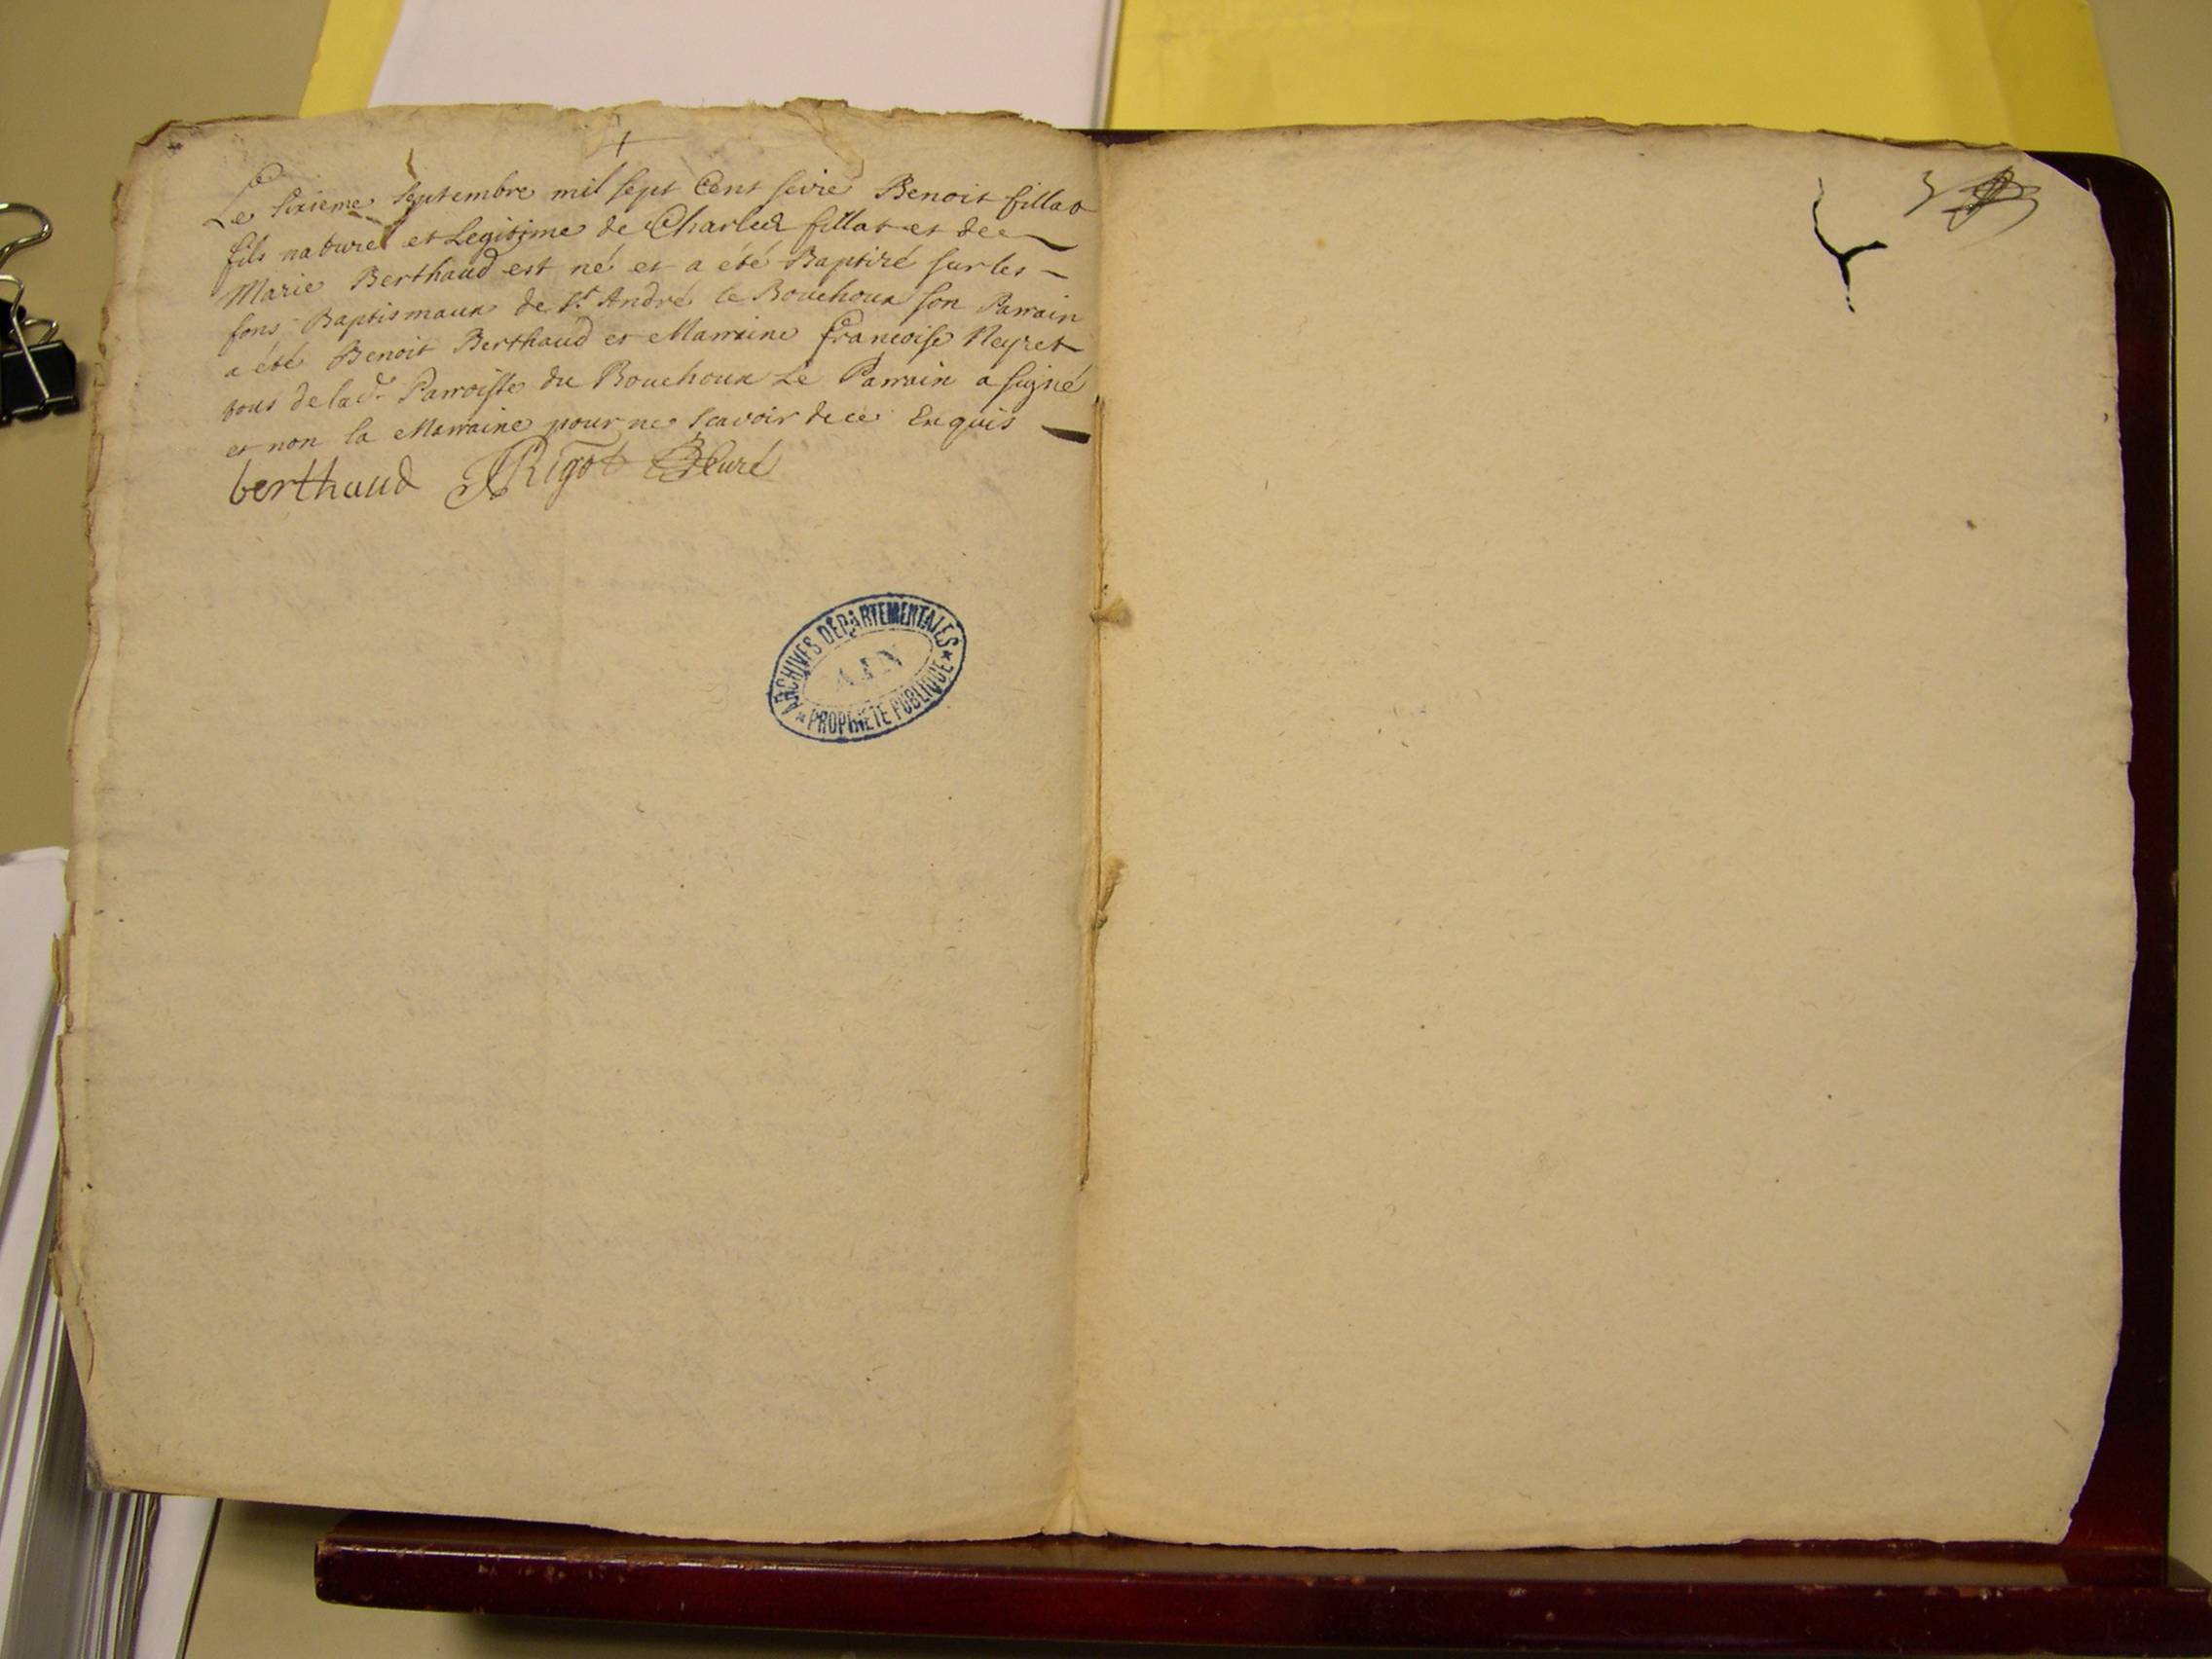 Le sixieme septembre mil sept Cent seize Benoit fillat
fils naturel et Legitime de Charles fillat et de
Marie Berthaud est né et a été Baptizé sur les
fons Baptismaux de St. André le Bouchoux son Parrain
a été Benoit Berthaud et Marraine francoise Neyret
tous de lad.e Parroisse du Bouchoux Le Parrain a signé
et non la Marraine pour ne scavoir de ce Enquis
berthaud Rigot Curé
ARCHIVES DÉPARTEMENTALES
AIN
PROPRIÉTÉ PUBLIQUE
3